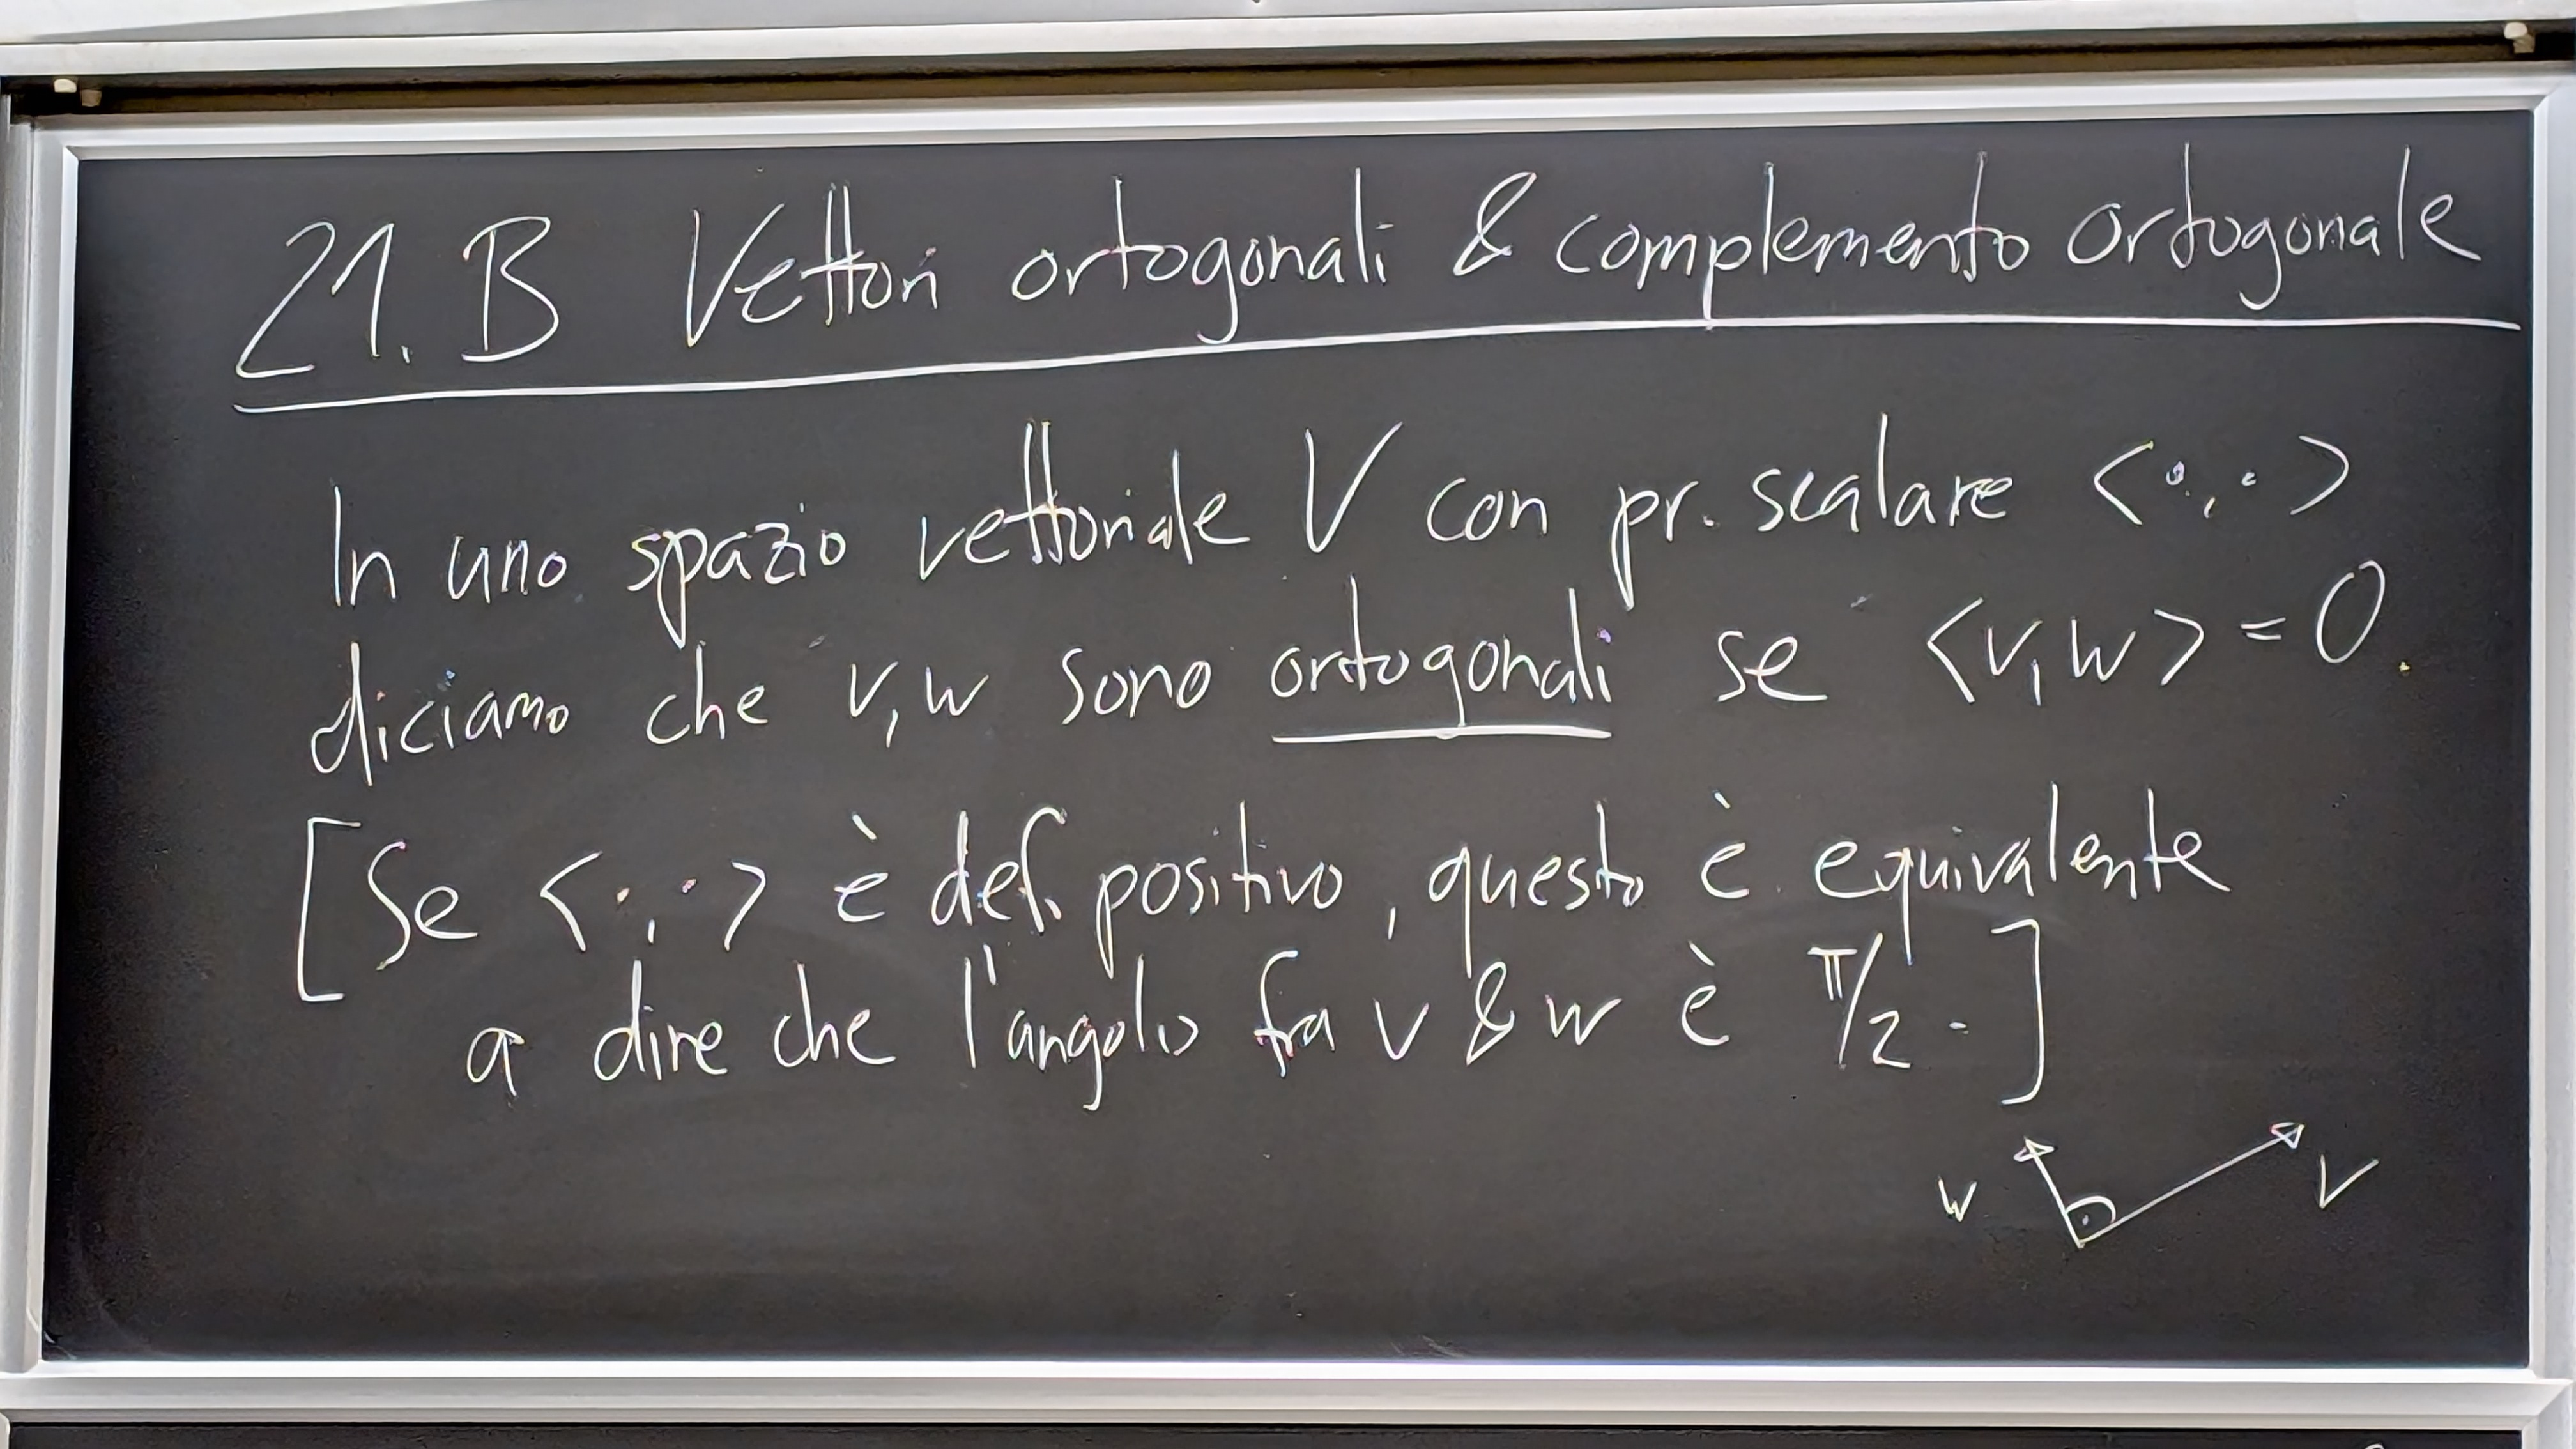 21.B Vettori ortogonali & complemento ortogonale
In uno spazio vettoriale V con pr. scalare <·,·>
diciamo che v,w sono ortogonali se <v,w> = 0.
[Se <·,·> è def. positivo, questo è equivalente
a dire che l'angolo fra v & w è π/2.]
w v